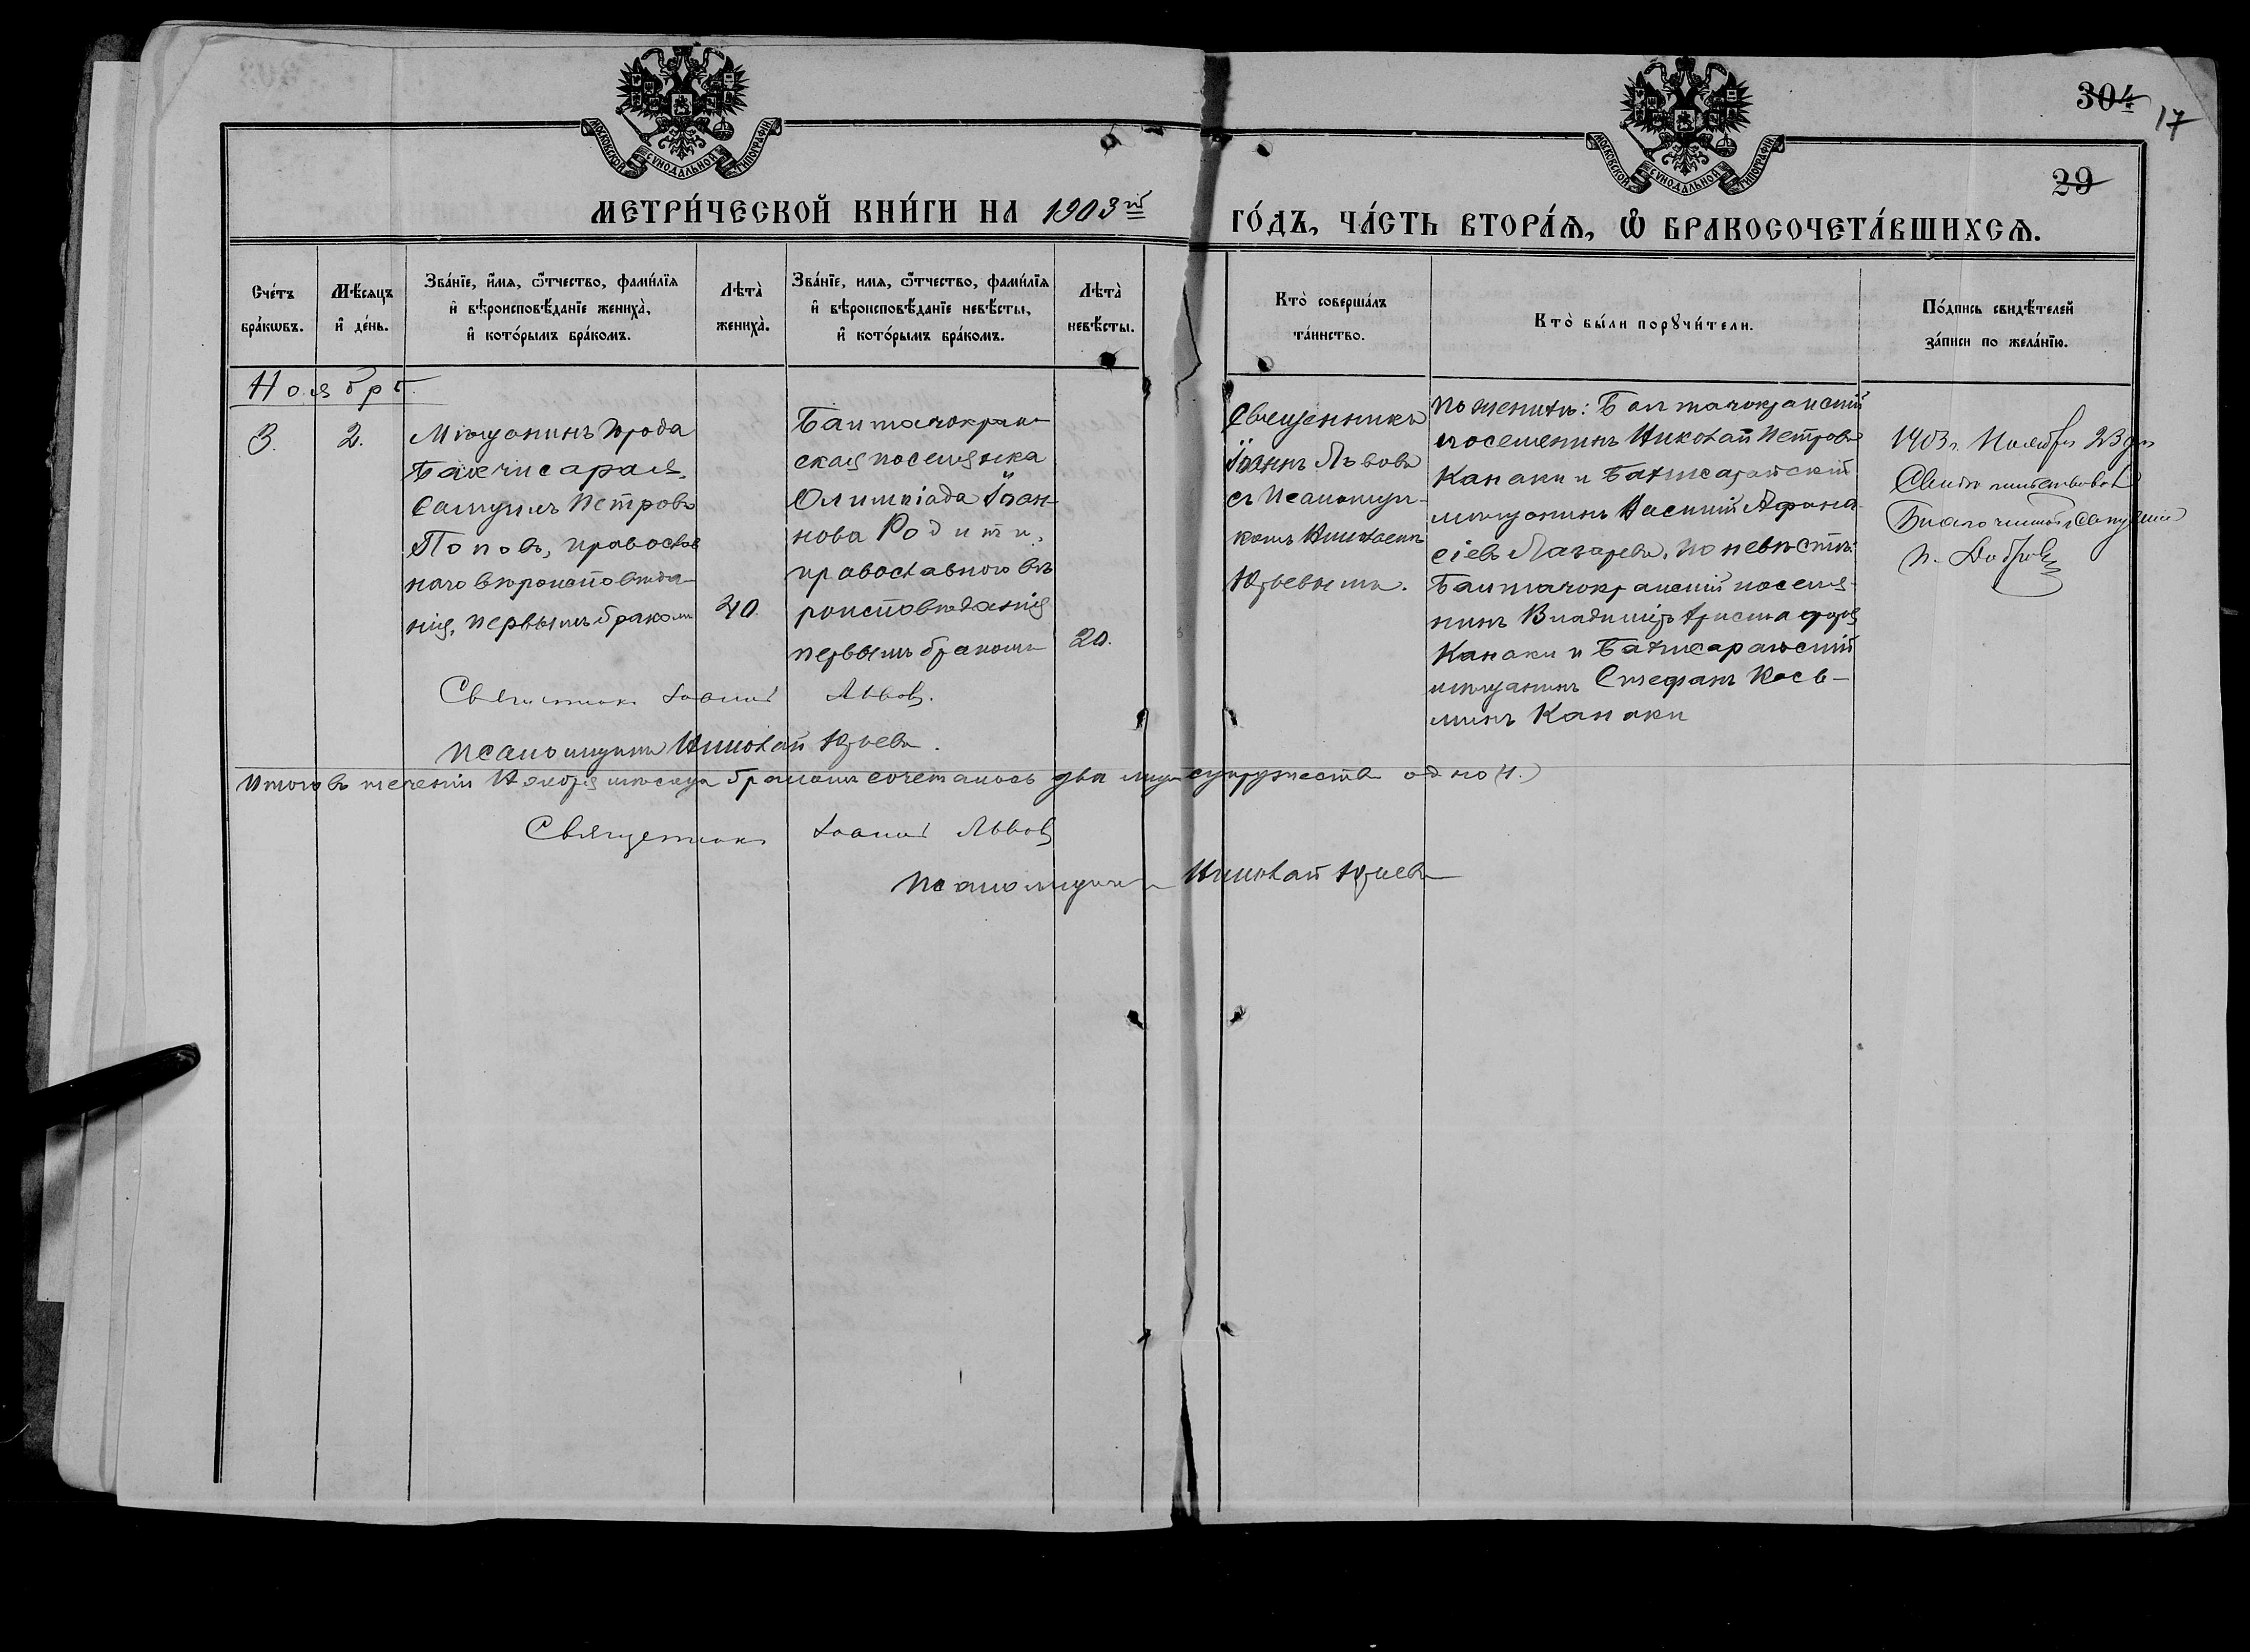 МОСКОВСКОЙ СѴНОДАЛЬНОЙ ТИПОГРАФІИ
МОСКОВСКОЙ СѴНОДАЛЬНОЙ ТИПОГРАФІИ
304
17
29
МЕТРИ́ЧЕСКОЙ КНИ́ГИ НА 1903й
ГО́ДЪ, ЧА́СТЬ ВТОРА́Ѧ, Ѽ БРАКОСОЧЕТА́ВШИХСѦ.
Сче́тъ
бра́кѡвъ.
Мѣ́сяцъ
и҆ де́нь.
Зва́нїе, и҆́мѧ, ѻ҆́тчество, фами́лїѧ
и҆ вѣроисповѣ́данїе жениха̀,
и҆ кото́рымъ бра́комъ.
Лѣта̀
жениха̀.
Зва́нїе, имѧ, ѻ҆́тчество, фами́лїѧ
и҆ вѣроисповѣ́данїе невѣ́сты,
и҆ кото́рымъ бра́комъ.
Лѣта̀
невѣ́сты.
Кто̀ соверша́лъ
та́инство.
Кто̀ бы́ли порꙋчи́тели.
По́дпись свидѣ́телей
за́писи по жела́нїю.
Ноябрь
3.
2.
Мѣщанинъ города
Бахчисарая,
Самуилъ Петровъ
Поповъ, православ
наго вѣроисповѣда-
нія, первымъ бракомъ
40.
Баштачокрак-
ская поселянка
Олимпіада Іоан-
нова Родити,
православного вѣ
роисповѣданія
первымъ бракомъ
20.
Священникъ
Іоаннъ Львовъ
съ Псаломщи-
комъ Николаемъ
Юрьевымъ.
По женихѣ: Баштачокракскій
поселенинъ Николай Петровъ
Канаки и Бахчисарайскій
мѣщанинъ Василій Афана-
сіевъ Лагаревъ, по невѣстѣ:
Баштачокракскій поселя-
нинъ Владиміръ Христофоровъ
Канаки и Бахчисарайскій
мѣщанинъ Стефанъ Косъ-
минъ Канаки
1903 г. Ноября 23 дня
Свидѣтельствовалъ
Благочинный
Священникъ Іоаннъ Львовъ.
Псаломщикъ Николай Юрьевъ.
Итого въ теченіи Ноября мѣсяца бракомъ сочеталось два лица супружества одно (1.)
Священникъ Іоаннъ Львовъ
Псаломщикъ Николай Юрьевъ